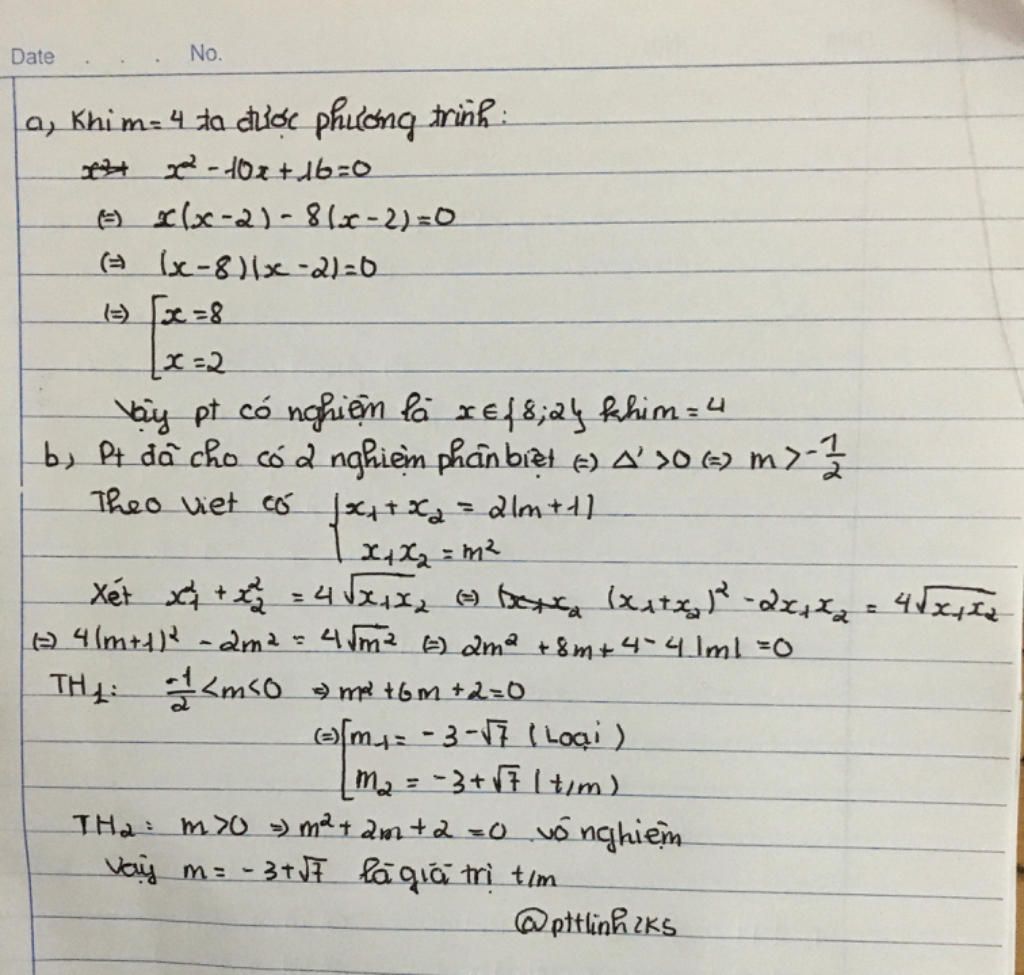 Date . . . No.
a, Khi m = 4 ta được phương trình:
x² - 10x + 16 = 0
(=) x(x - 2) - 8(x - 2) = 0
(=) (x - 8)(x - 2) = 0
(=) [x = 8
[x = 2
Vậy pt có nghiệm là x ∈ {8;2} khi m = 4
b, Pt đã cho có 2 nghiệm phân biệt (=) Δ' > 0 (=) m > -1/2
Theo viet có {x₁ + x₂ = 2(m + 1)
x₁x₂ = m²
Xét x₁² + x₂² = 4√x₁x₂ (=) (x₁+x₂)² - 2x₁x₂ = 4√x₁x₂
(=) 4(m+1)² - 2m² = 4√m² (=) 2m² + 8m + 4 - 4|m| = 0
TH1: -1/2 < m < 0 ⇒ m² + 6m + 2 = 0
(=) [m₁ = -3 - √7 (Loại)
[m₂ = -3 + √7 (t/m)
TH2: m > 0 ⇒ m² + 2m + 2 = 0 vô nghiệm
Vậy m = -3 + √7 là giá trị t/m
@pttlinh2K5